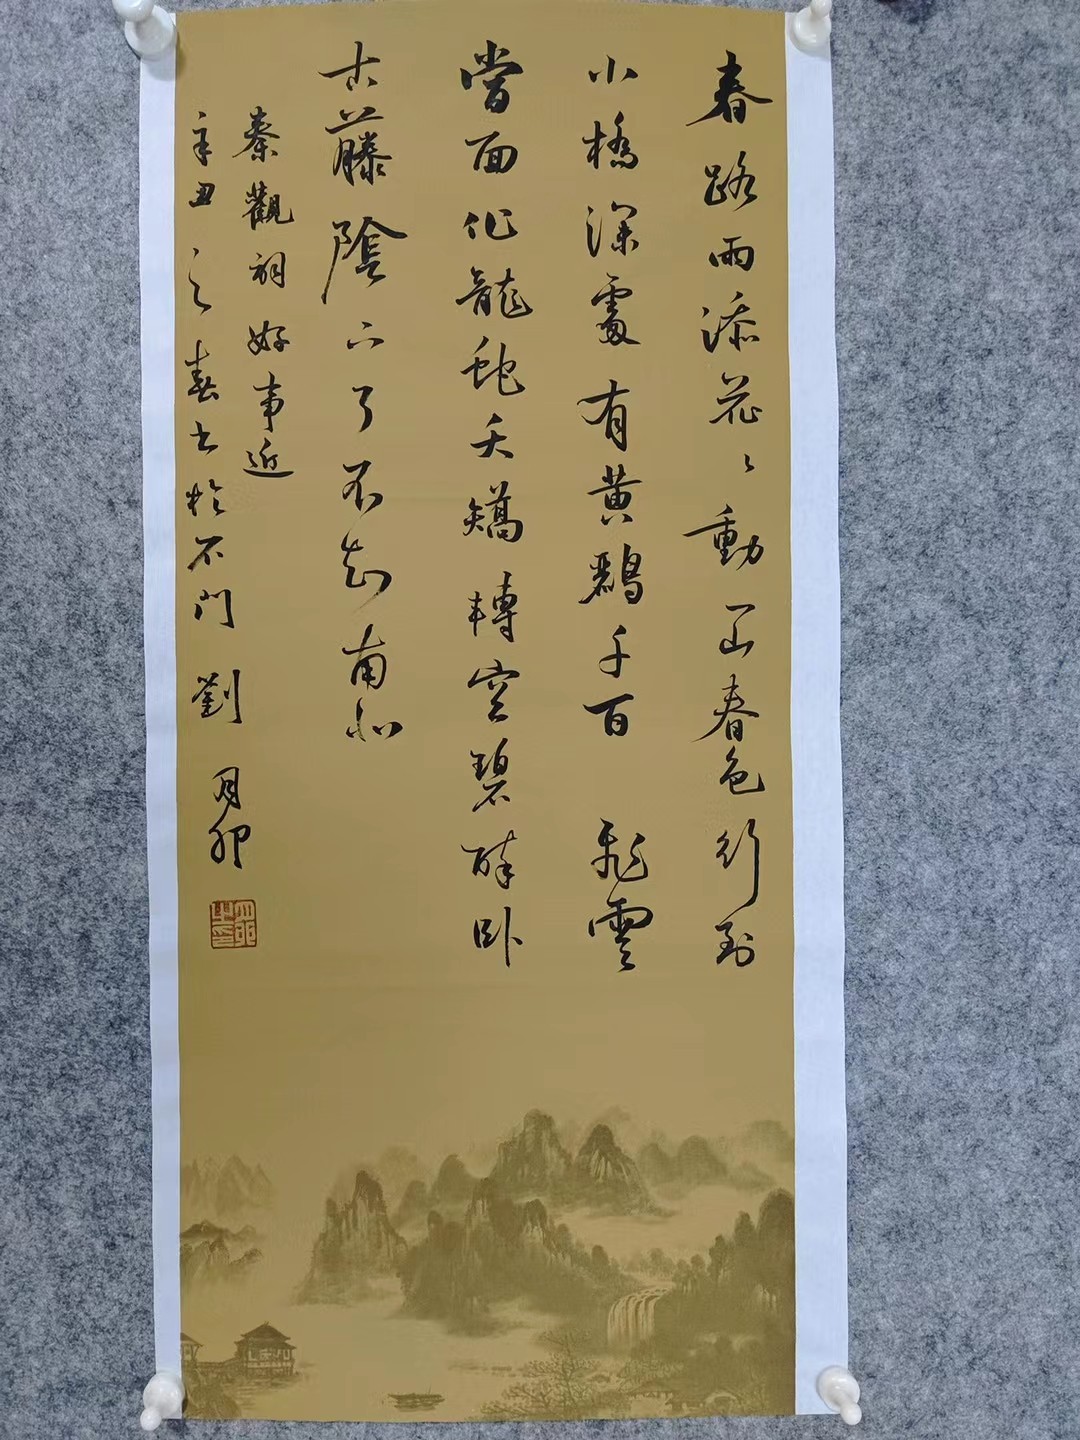 春路雨添花〻動一山春色行到
小橋深處有黃鸝千百飛雲
當面化龍蛇夭矯轉空碧醉卧
古藤陰下了不知南北
秦觀詞好事近
辛丑之春書於石門劉月卯